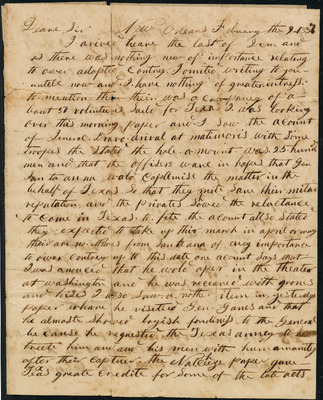 Deare Sir New Orleans February the 9 183
I arived heare the last of Dem and
as there was nothing new of importance relating
to ower adopted Contrey I omited writing to you
untill now and I have nothing of greater intress
to mention than their was a company of a
bout 57 volintiers saile for Texas I was looking
over this morning paper and I saw the acount
of General Bravo arival at matimoris with Some
troopes the Stated the hole amount was 25 hundred
men and that the officers ware in hopes that Jeneral
Santa anna wold Comprimise the matter in the
behalf of Texas So that they mite Save thier militar
reputation and the privates Sowed the reluctance
to Come in Texas to fite the acount allso Stated
they expected to take up this march in april or may
their are no News from Santa ana of eny importance
to ower Contrey up to this date one acount Says that
I was anuced that he wold aper in the theater
at washington and he was receved with grones
and hises I also Saw a nother item in yesterdays
paper whare he visited Gen Gaines and that
he almoste Shoved to the General
be cause he requested the Texas armey to
treete him and his men with humanity
after thier Capture the Natchez paper gave
Texas greate Credite for Some of the late acts